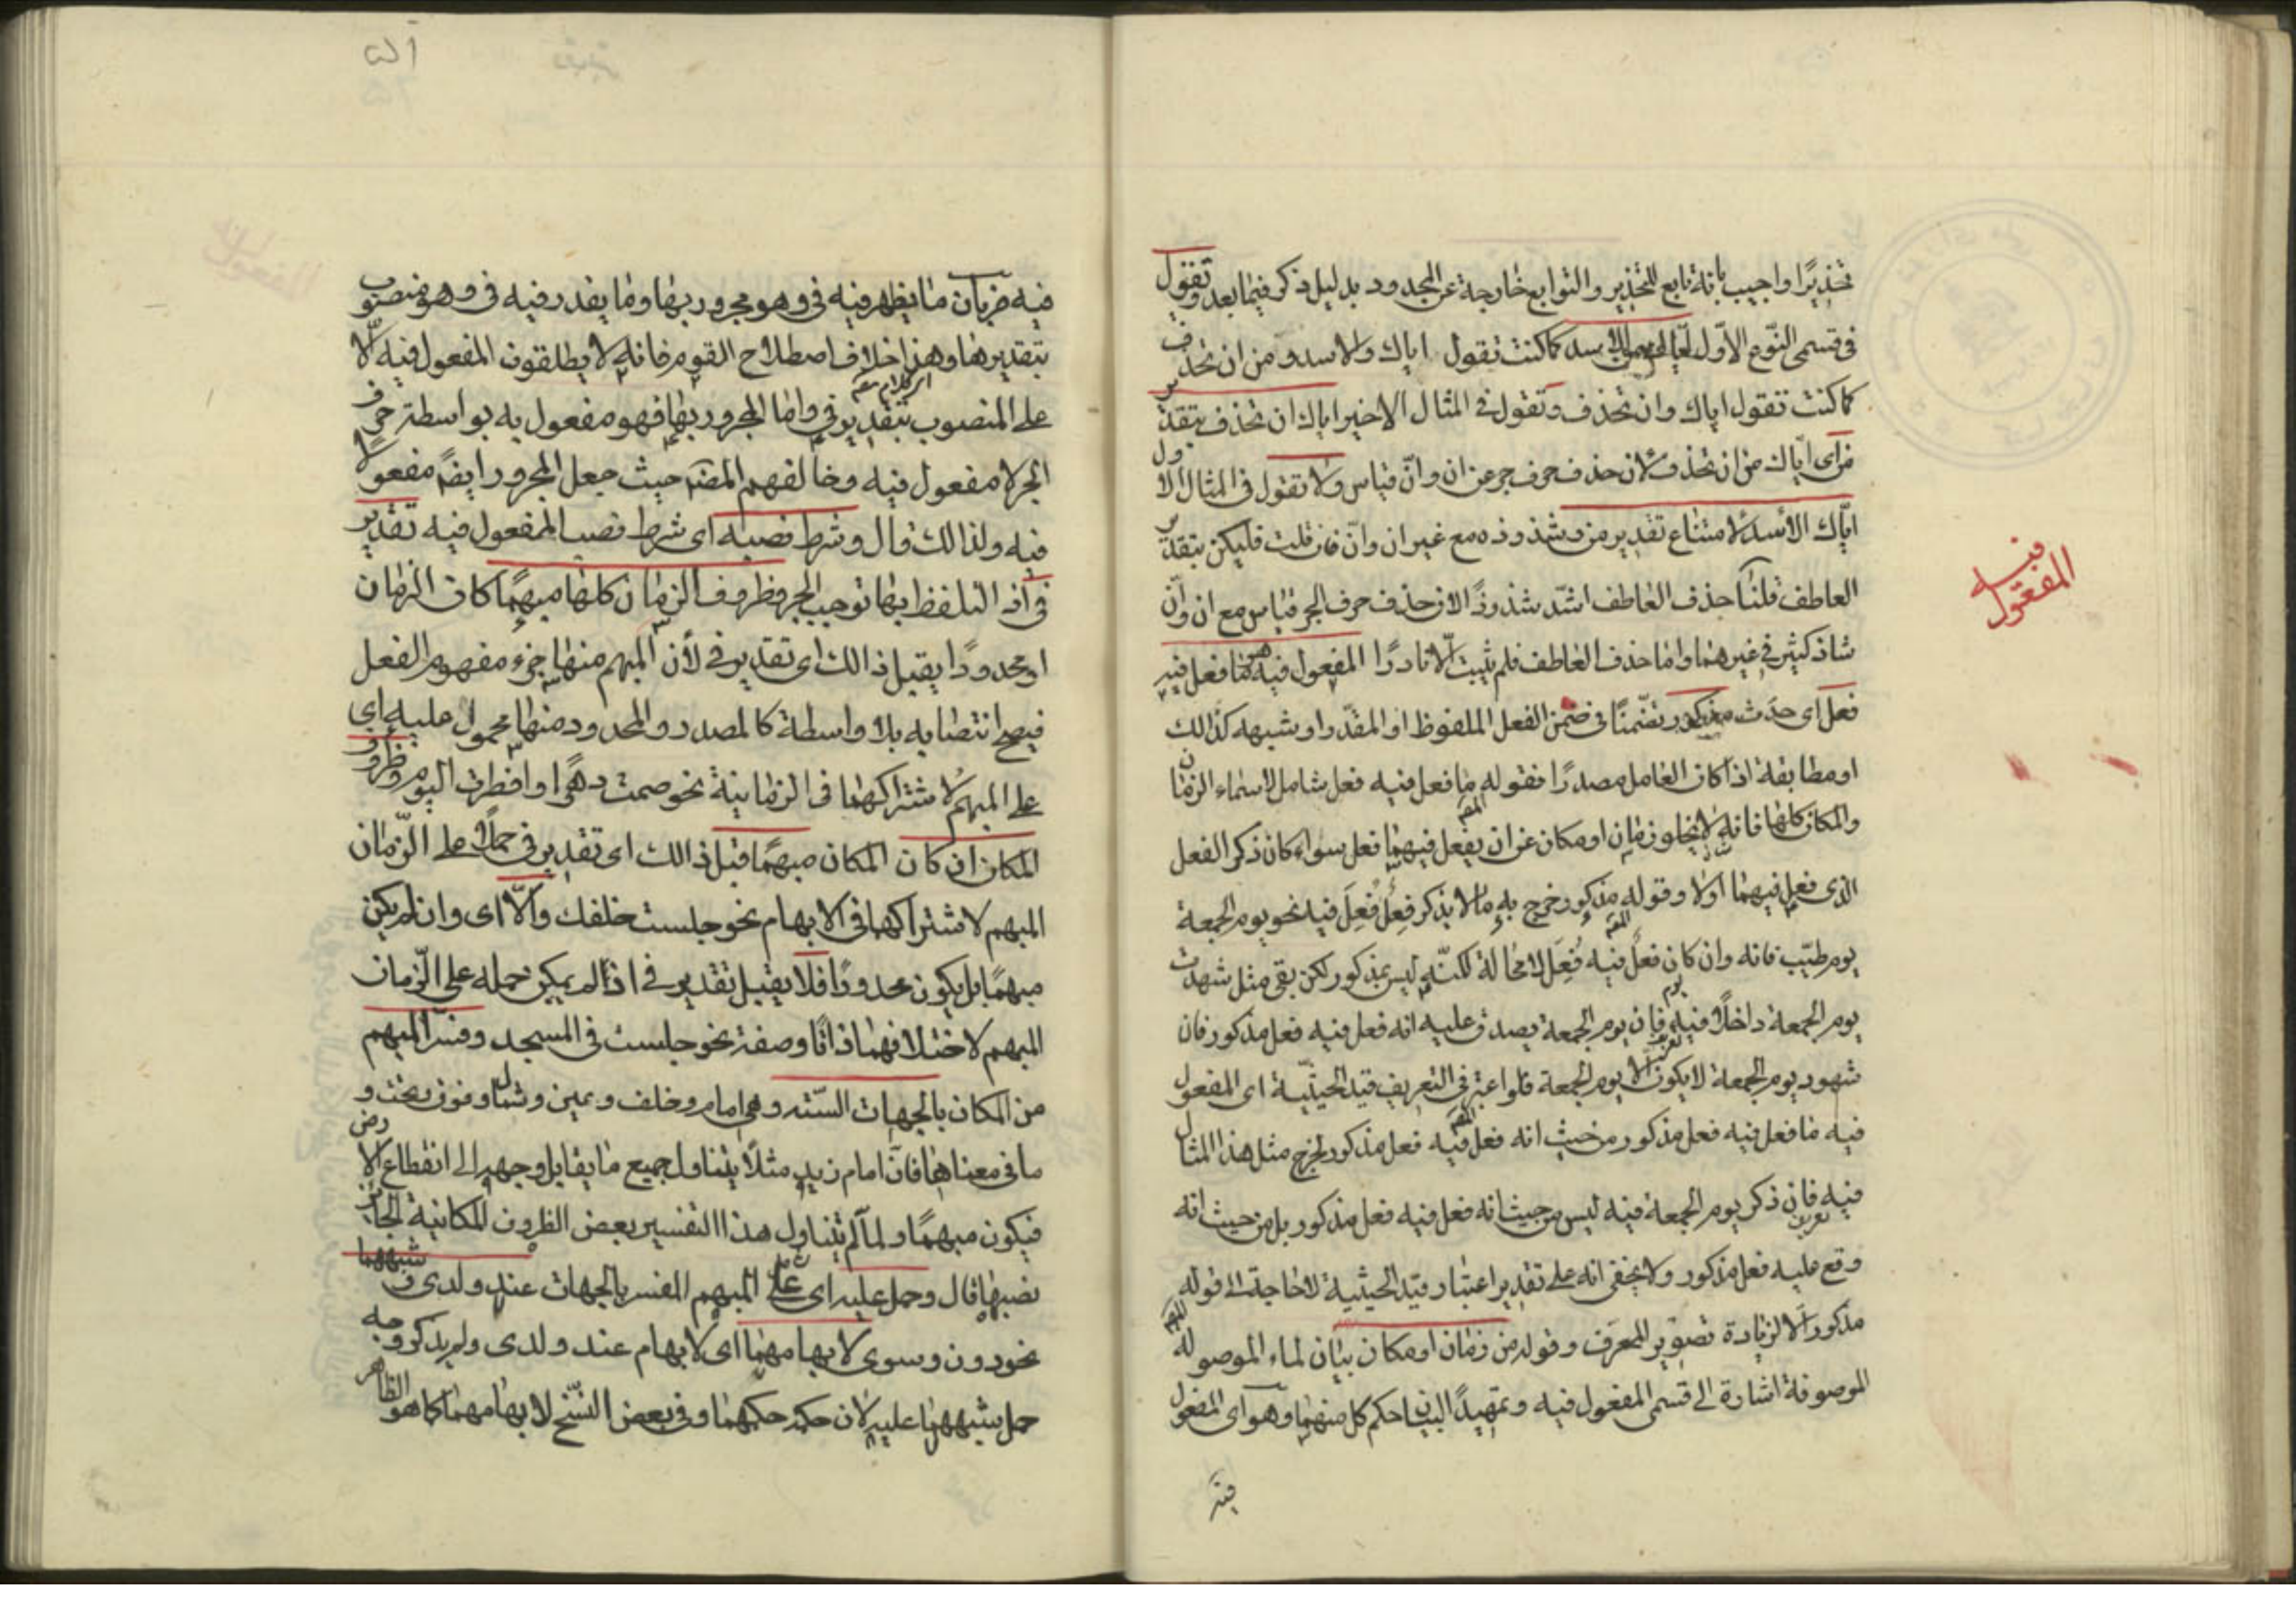 تحذيرًا واجيب بانه تابع للتحذير والتوابع خارجة عن المحدود بدليل ذكر فيما بعد وتقول
في قسمي النوع الاوّل اياك من الاسد كما كنت تقول اياك والاسد ومن ان تحذف
كما كنت تقول اياك وان تحذف وتقول في المثال الاخير اياك ان تحذف بتقدير
من اي اياك من ان تحذف لان حذف حرف جر عن ان وانّ قياس ولا تقول في المثال الاول
اياك الاسد لامتناع تقدير من وشذوذه مع غير ان وانّ فان قلت فليكن بتقدير
العاطف قلنا حذف العاطف اشدّ شذوذًا لان حذف حرف الجر قياس مع ان وانّ
شاذ كثير في غيرهما واما حذف العاطف فلم يثبت الّا نادرًا المفعول فيه هو ما فعل فيه
فعل اي حدث مذكور تضمّنًا في ضمن الفعل الملفوظ او المقدّر او شبهه كذالك
او مطابقة اذا كان العامل مصدرًا فقوله ما فعل فيه فعل شامل لاسماء الزمان
والمكان كلها فانه لا يخلو زمان او مكان عن ان يفعل فيهما فعل سواء كان ذكر الفعل
الذي فعل فيهما اولا وقوله مذكور خرج به ما لا يذكر فِعلٌ فُعِلَ فيه نحو يوم الجمعة
يوم طيّب فانه وان كان فعل فيه فُعِلَ لا محالة لكنّه ليس بمذكور لكن بقي مثل شهدت
يوم الجمعة داخلًا فيه فان يوم الجمعة يصدق عليه انه فعل فيه فعل مذكور فان
شهود يوم الجمعة لا يكون الا يوم الجمعة فلو اعتبر في التعريف قيد الحيثيّة اي المفعول
فيه ما فعل فيه فعل مذكور من حيث انه فعل فيه فعل مذكور لخرج مثل هذا المثال
فيه فان ذكر يوم الجمعة فيه ليس من حيث انه فعل فيه فعل مذكور بل من حيث انه
وقع عليه فعل مذكور ولا يخفى انه على تقدير اعتبار قيد الحيثية لا حاجة الى قوله
مذكور الا لزيادة تصوير المعرّف وقوله من زمان او مكان بيان لماء الموصوله
الموصوفة اشارة الى قسمي المفعول فيه وتمهيدًا لبيان حكم كل منهما وهو اي المفعول
فيه
المفعول
فيه
فيه ضربان ما يظهر فيه في وهو مجرور بها وما يقدر فيه في وهو منصوب
بتقديرها وهذا خلاف اصطلاح القوم فانه لا يطلقون المفعول فيه الّا
على المنصوب بتقدير في واما المجرور بها فهو مفعول به بواسطة حرف
الجر لا مفعول فيه وخالفهم المصنف حيث جعل المجرور ايضًا مفعولًا
فيه ولذالك قال وشرط نصبه اي شرط نصب المفعول فيه تقدير
في اذ التلفظ بها توجب الجر فظروف الزمان كلها مبهمًا كان الزمان
او محدودًا يقبل ذالك اي تقدير في لأن المبهم منها جزء مفهوم الفعل
فيصح انتصابه بلا واسطة كالمصدر والمحدود منها محمول عليه اي
على المبهم لاشتراكهما في الزمانية نحو صمت دهرًا وافطرت اليوم وظروف
المكان ان كان المكان مبهمًا قبل ذالك اي تقدير في حملًا على الزّمان
المبهم لاشتراكهما في الابهام نحو جلست خلفك والّا اي وان لم يكن
مبهمًا بل يكون محدودًا فلا يقبل تقدير في اذ لم يمكن حمله على الزّمان
المبهم لاختلافهما ذاتًا وصفة نحو جلست في المسجد وفسّر المبهم
من المكان بالجهات السّته وهي امام وخلف ويمين وشمال وفوق وتحت و
ما في معناها فانّ امام زيد مثلًا يتناول جميع ما يقابل وجهه الى انقطاع الارض
فيكون مبهمًا ولما لم يتناول هذا التفسير بعض الظروف المكانية الجائز
نصبها قال وحمل عليه اي على المبهم المفسر بالجهات عند ولدى وشبههما
نحو دون وسوى لابهامهما اي لابهام عند ولدى ولم يذكر وجه
حمل شبههما عليه لان حكمه حكمهما وفي بعض النسّخ لابهامهما كما هو الظاهر